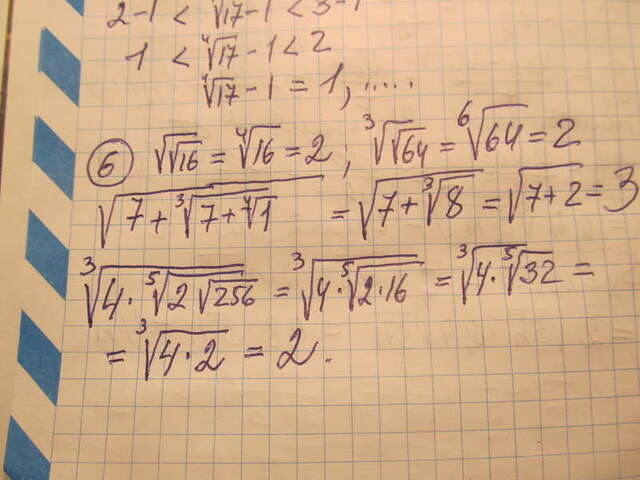 2-1 < ∜17-1 < 3-1
1 < ∜17-1 < 2
∜17-1 = 1,.....
6 √√16 = ∜16 = 2; ∛√64 = ⁶√64 = 2
√(7+∛(7+⁷√1)) = √(7+∛8) = √(7+2) = 3
∛(4·⁵√(2√256)) = ∛(4·⁵√(2·16)) = ∛(4·⁵√32) =
= ∛(4·2) = 2.